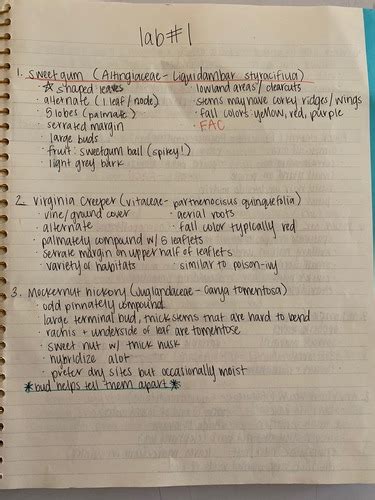 lab #1
1. sweetgum (Altingiaceae - Liquidambar styraciflua)
☆ shaped leaves
· alternate (1 leaf / node)
· 5 lobes (palmate)
· serrated margin
· large buds
· fruit: sweetgum ball (spikey!)
· light grey bark
· lowland areas / clearcuts
· stems may have corky ridges/wings
· fall colors: yellow, red, purple
· FAC
2. Virginia Creeper (Vitaceae - parthenocisus quinquefolia)
· vine/ground cover
· alternate
· palmately compound w/ 5 leaflets
· serrate margin on upper half of leaflets
· variety of habitats
· aerial roots
· fall color typically red
· similar to poison-ivy
3. Mockernut hickory (Juglandaceae - Carya tomentosa)
· odd pinnately compound
· large terminal bud, thick stems that are hard to bend
· rachis + underside of leaf are tomentose
· sweet nut w/ thick husk
· hybridize alot
· prefer dry sites but occasionally moist
*bud helps tell them apart*